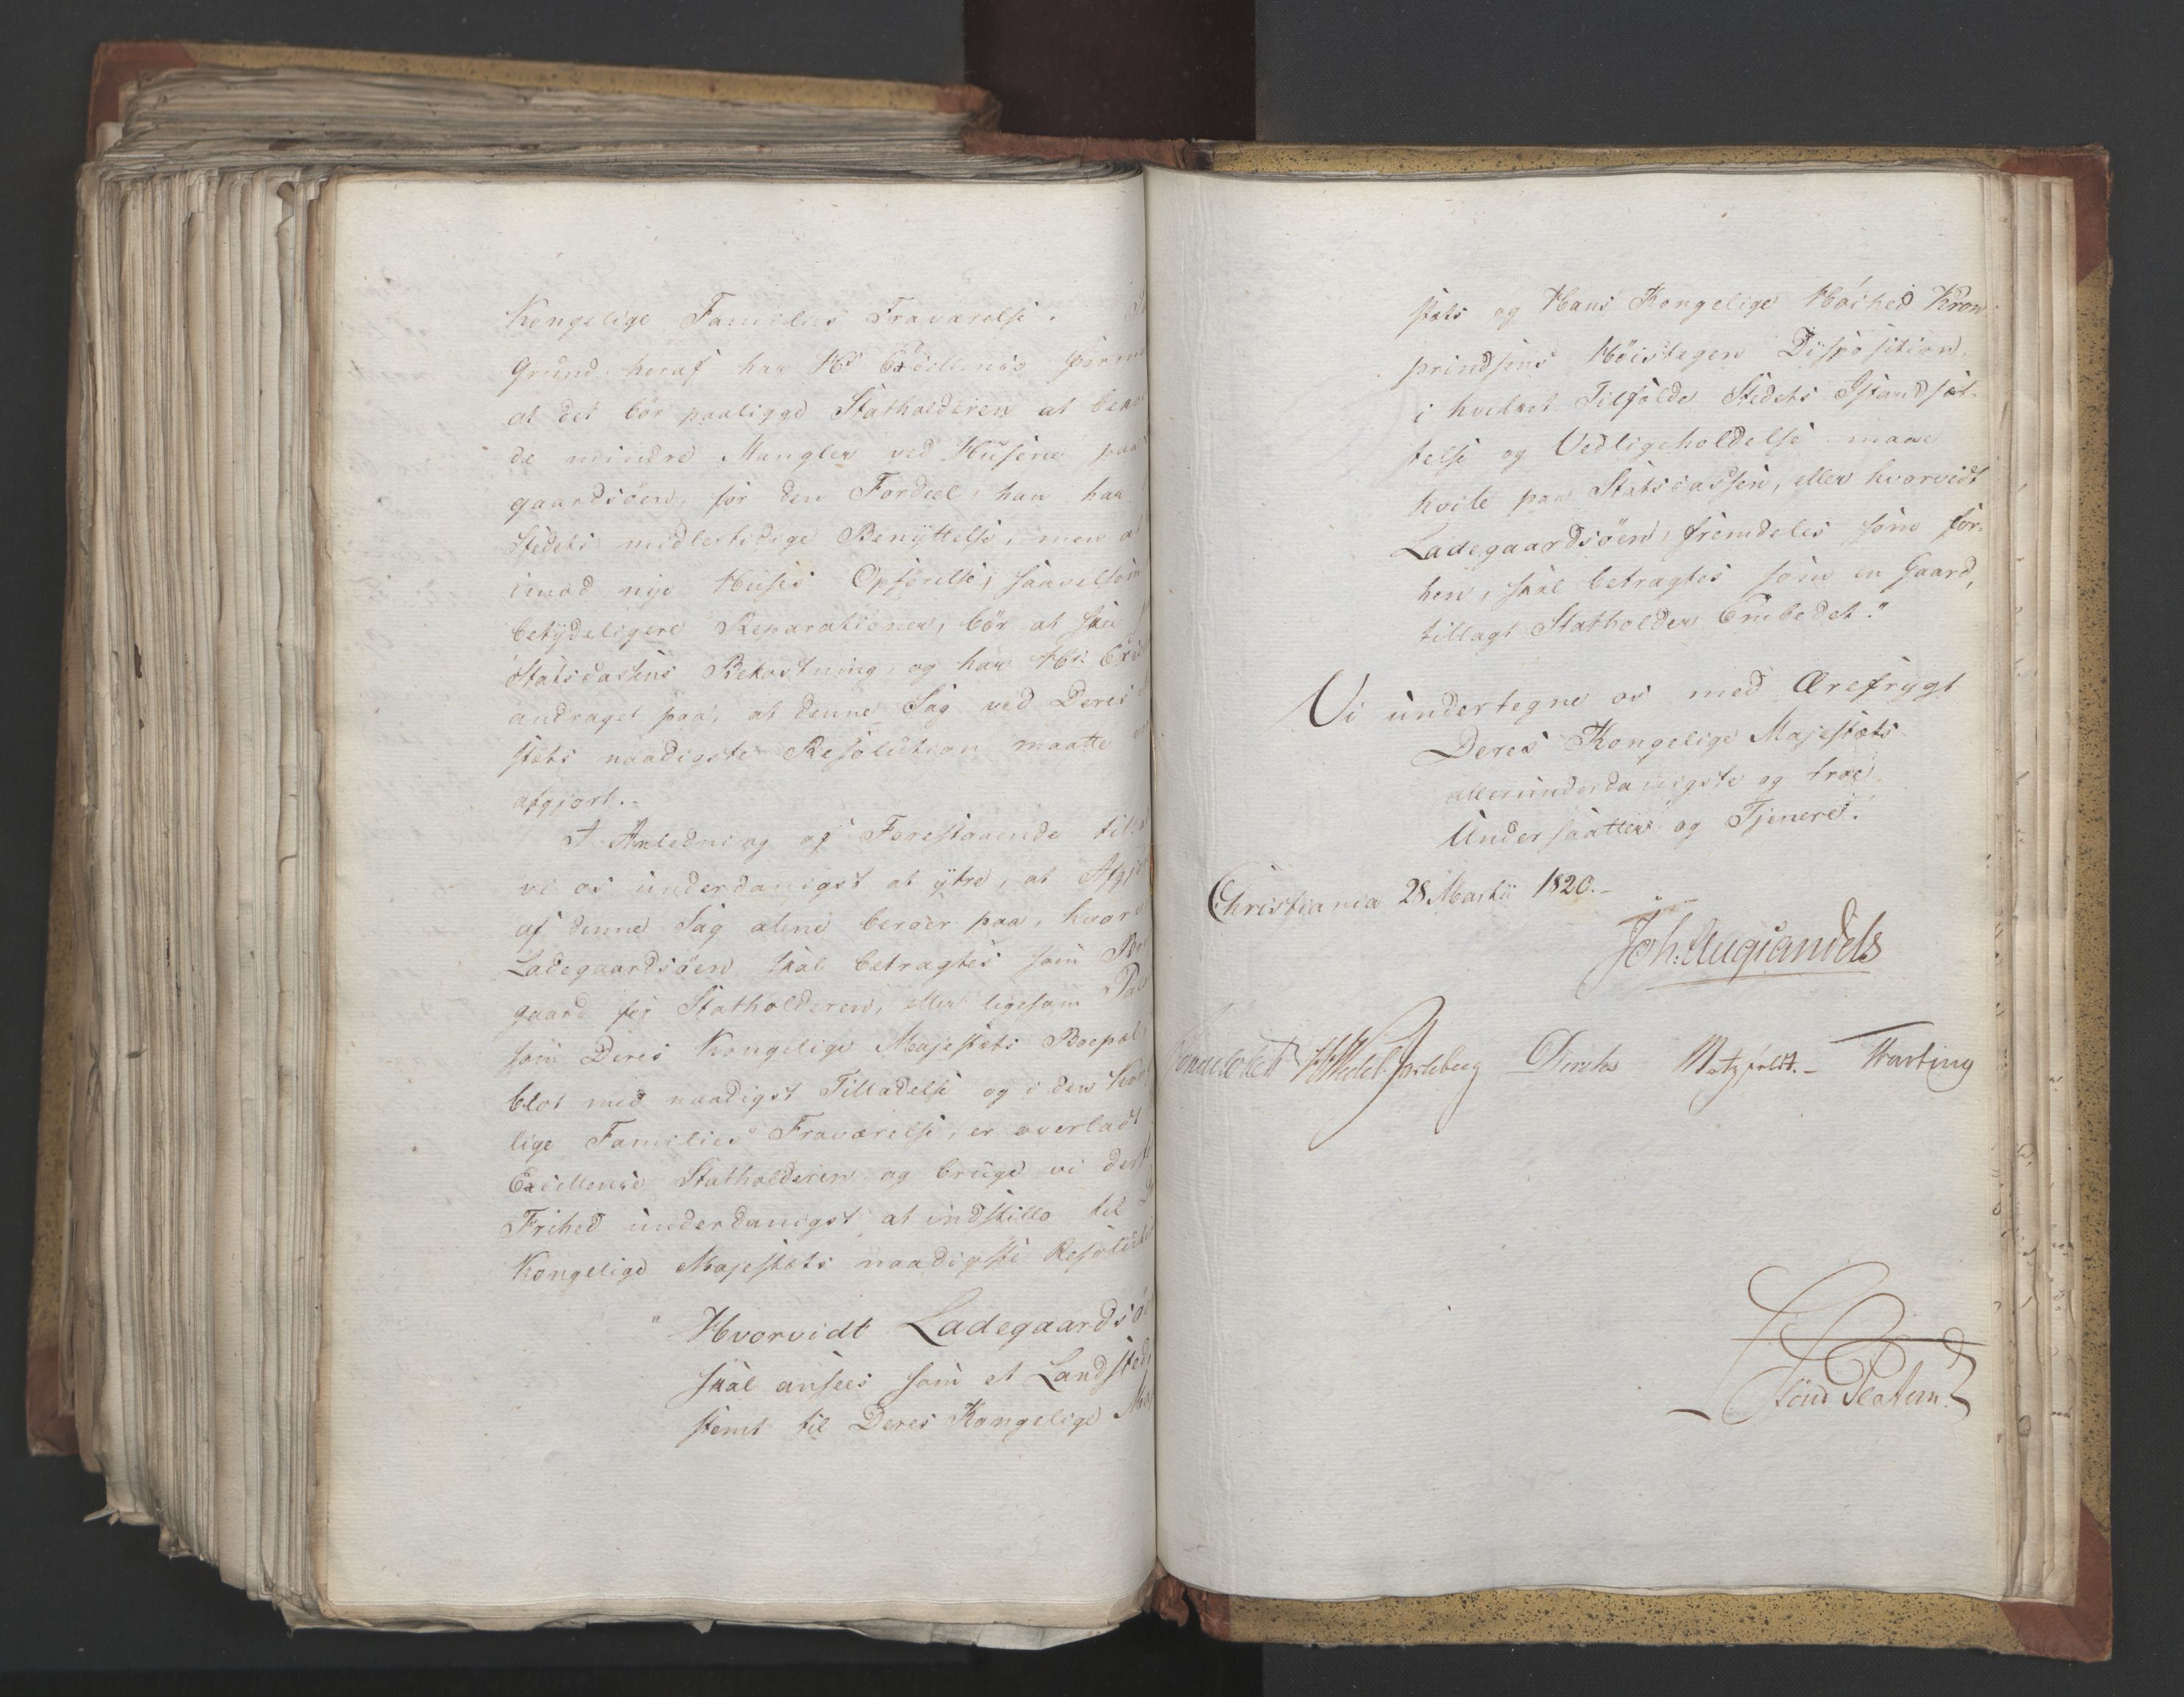 Kongelige Families Fraværelse.
Grund heraf har Hs Excellence
at det bør paaligge Statholderen at
de mindre Mangler ved Husene paa
gaardsöen, for den Fordeel, han har
Stedets midlertidige Benyttelse, men
imod nye Huses Opførelse, saavelsom
betydeligere Reparationer, bör at skee
Statscassens Bekostning, og har Hs:
andraget paa, at denne Sag ved Deres
stæts naadigste Resolution maatte
afgjort.
I Anledning af Forestaaende
vi os underdanigst at ytre, at
af denne Sag alene beroer paa,
Ladegaardsöen skal betragtes som
gaard for Statholderen, eller ligesom
som Deres Kongelige Majestæts
blot med naadigst Tilladelse og i den
lige Families Fraværelse, er overladt
Excellence Statholderen og bruge vi
Frihed underdanigst at indstille til
Kongelige Majestæts naadigste
"Hvorvidt
skal ansees som et
stemt til Deres Kongelige
stæts og Hans Kongelige Höihed Kron-
prindsens Höistegen Disposition,
i hvilket Tilfælde Stedets Istandsæt-
telse og Vedligeholdelse maae
hvile paa Statscassen, eller hvorvidt
Ladegaardsöen, fremdeles som for-
hen, skal betragtes som en Gaard,
tillagt Statholder Embedet."
Vi undertegne os med Ærefrygt
Deres Kongelige Majestæts
allerunderdanigste og troe
Undersaatter og Tjenere.
Christiania 28 Martii 1820.
Joh: Aug: Sandels
Sommerhielm HWedel Jarlsberg Diriks Motzfeldt. Fasting